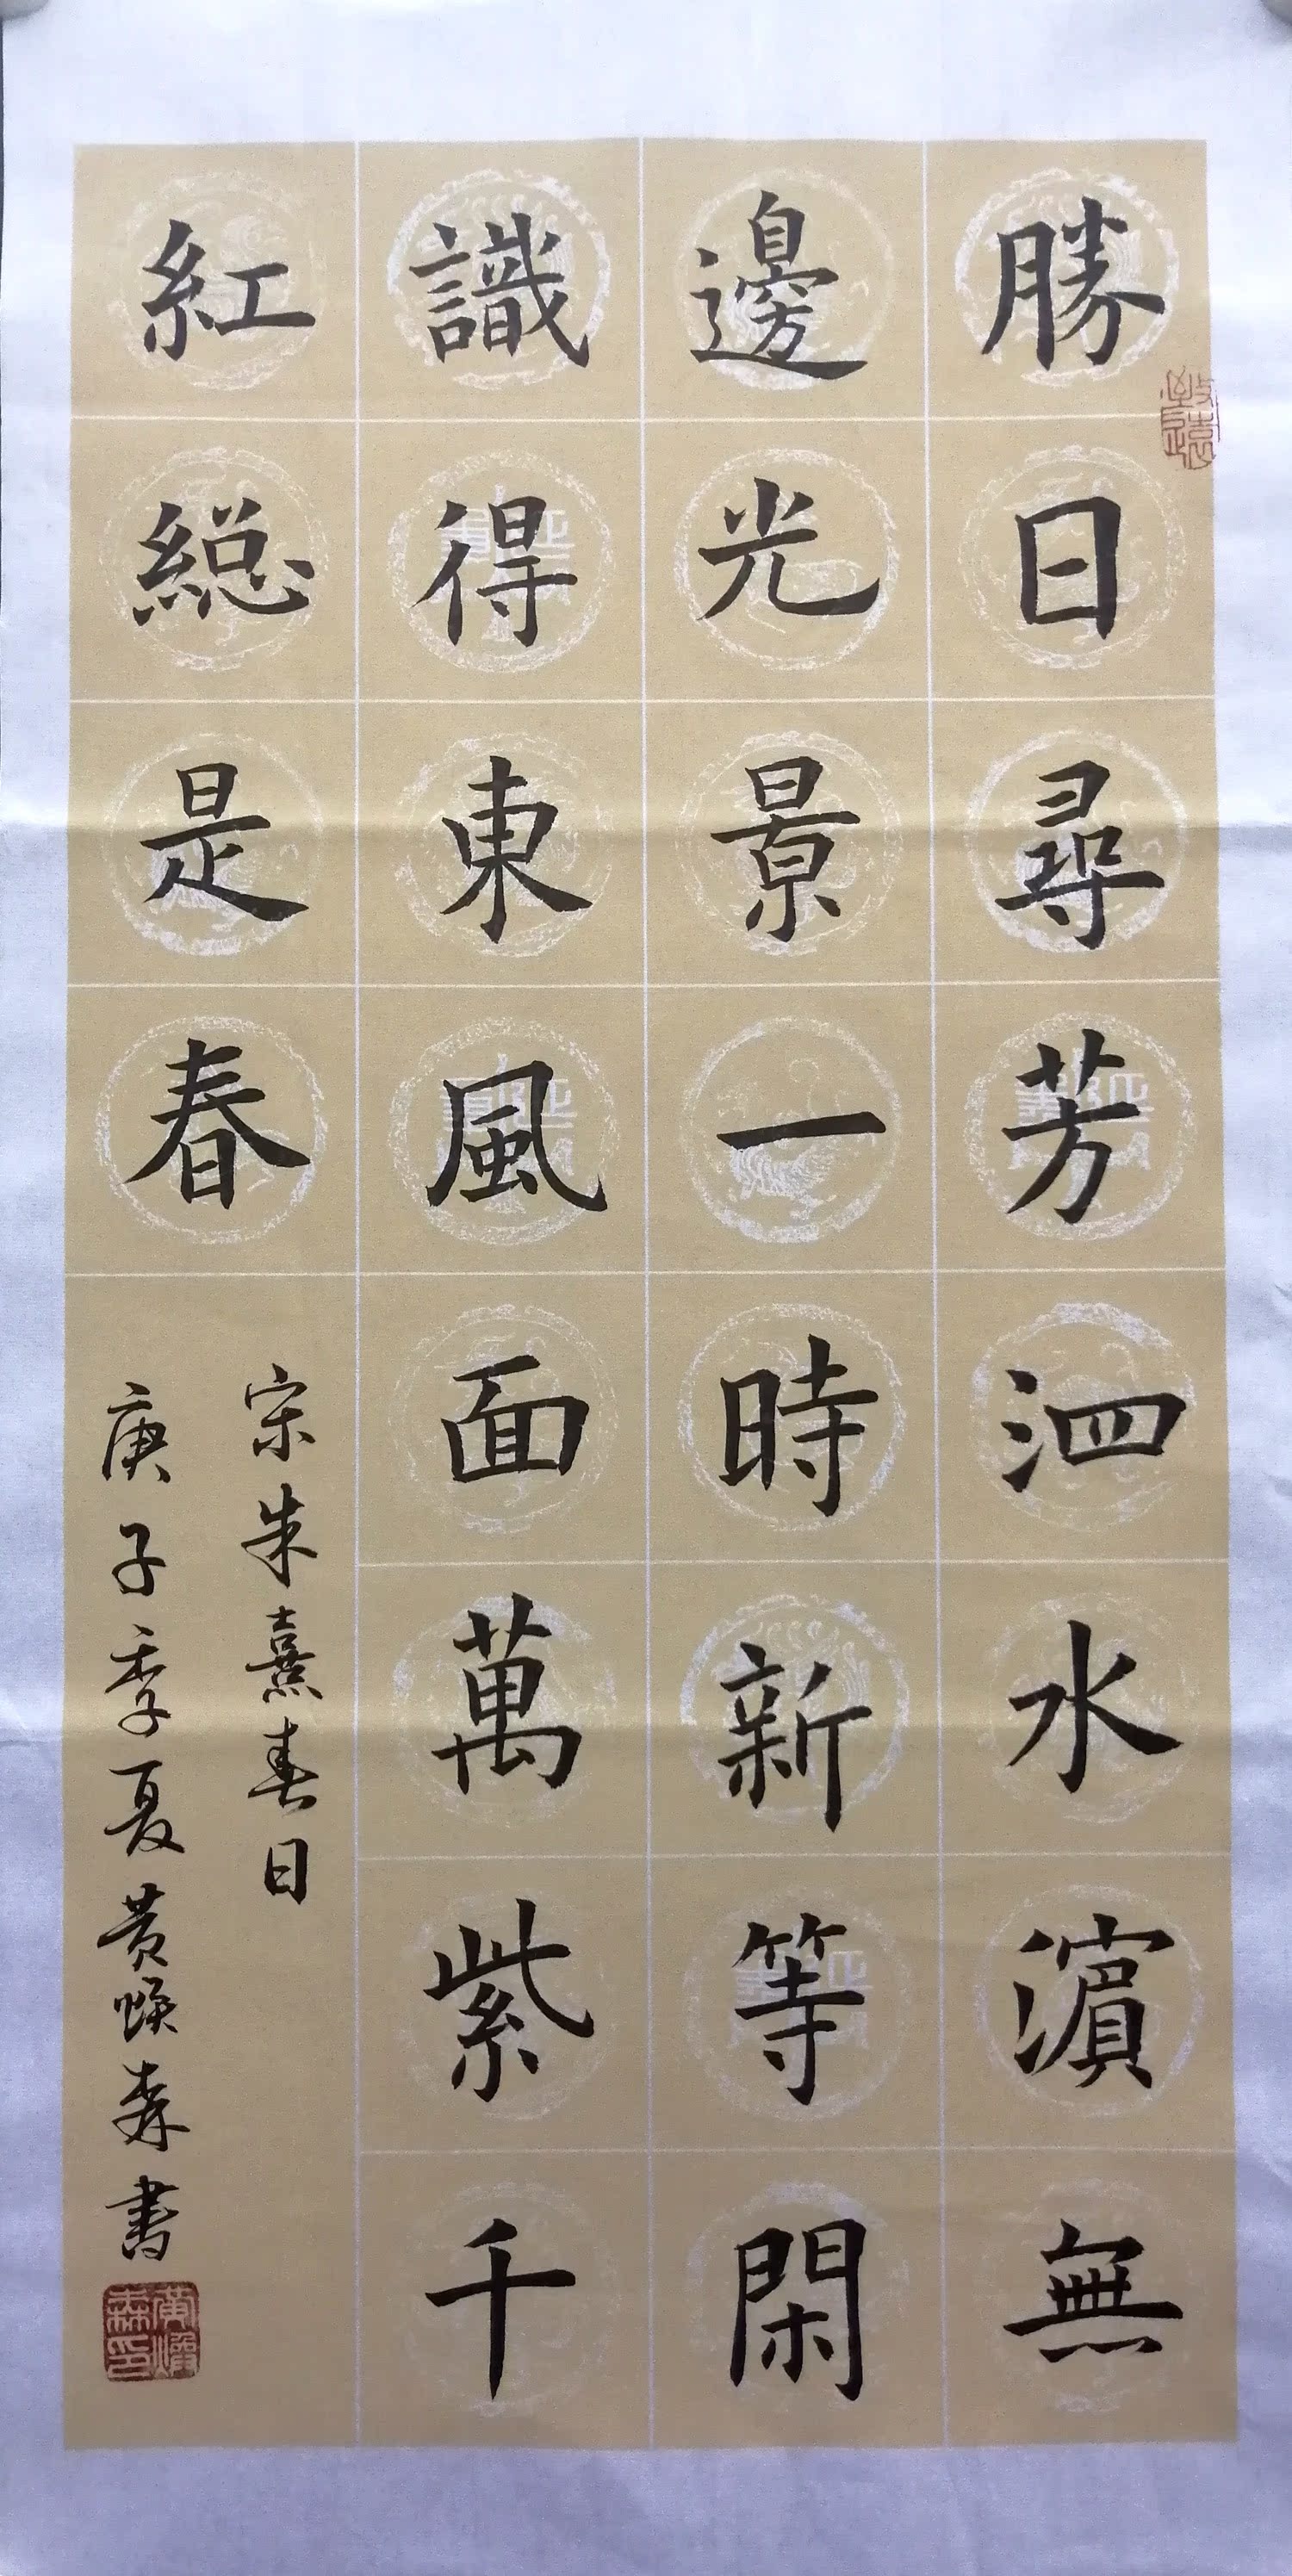 勝日尋芳泗水濵無
邊光景一時新等閑
識得東風面萬紫千
紅総是春
宋朱熹春日
庚子季夏黄焕森書